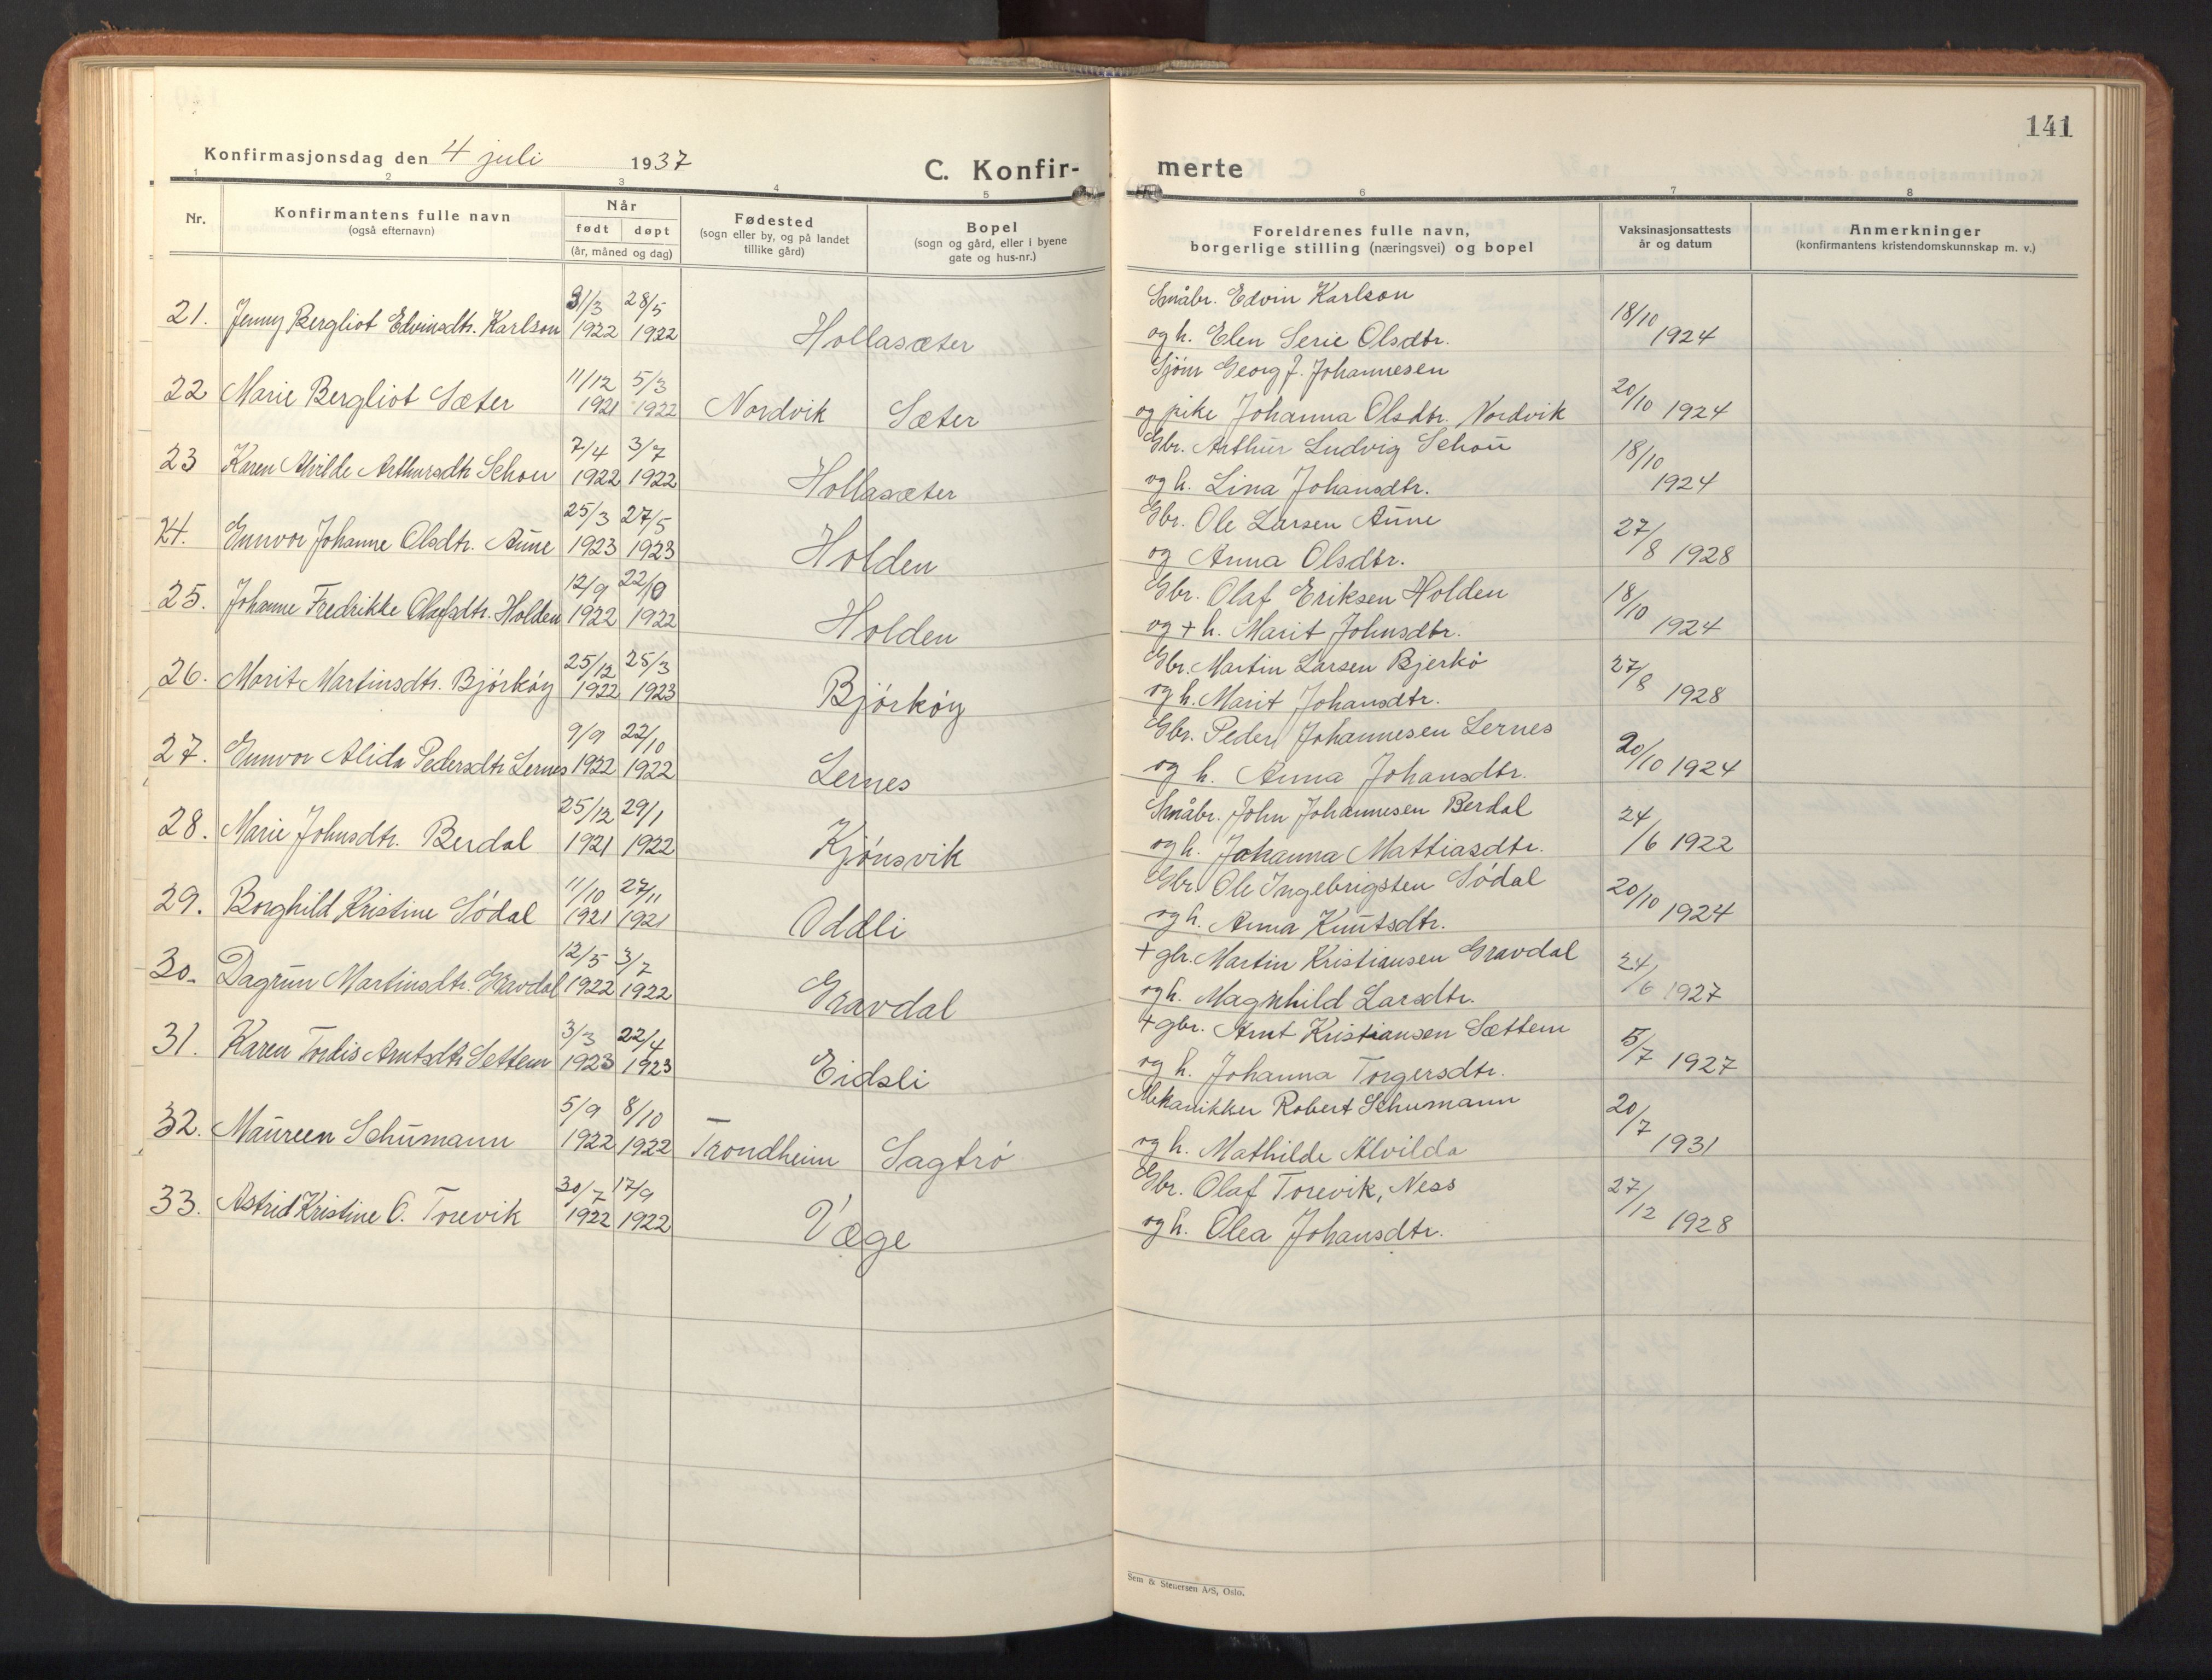 141
Konfirmasjonsdag den 4 juli 1937
C. Konfir-
merte
1 2 3 4 5 6 7 8
Nr.
Konfirmantens fulle navn
(også efternavn)
Når
født døpt
(år, måned og dag)
Fødested
(sogn eller by, og på landet
tillike gård)
Bopel
(sogn og gård, eller i byene
gate og hus-nr.)
Foreldrenes fulle navn,
borgerlige stilling (næringsvei) og bopel
Vaksinasjonsattests
år og datum
Anmerkninger
(konfirmantens kristendomskunnskap m. v.)
31/3 28/5 Småbr. Edvin Karlson 18/10
21. Jenny Bergliot Edvinsdtr. Karlson 1922 1922 Hollasæter og h. Elen Serie Olsdtr. 1924
11/12 5/3 Sjøm Georg J. Johannesen 20/10
22 Marie Bergliot Sæter 1921 1922 Nordvik Sæter og pike Johanna Olsdtr. Nordvik 1924
7/4 3/7 Gbr. Arthur Ludvig Schou 18/10
23 Karen Alvilde Arthursdtr Schou 1922 1922 Hollasæter og h. Lina Johansdtr. 1924
25/3 27/5 Gbr. Ole Larsen Aune 27/8
24. Gunvor Johanne Olsdtr. Aune 1923 1923 Holden og Anna Olsdtr. 1928
12/9 22/10 Gbr. Olaf Eriksen Holden 18/10
25. Johanne Fredrikke Olafsdtr. Holden 1922 1922 Holden og + h. Marit Johnsdtr. 1924
25/12 25/3 Gbr. Martin Larsen Bjerkø 27/8
26. Marit Martinsdtr. Bjørkøy 1922 1923 Bjørkøy og h. Marit Johansdtr. 1928
9/9 22/10 Gbr. Peder Johannesen Lernes 20/10
27. Gunvor Alida Pedersdtr Lernes 1922 1922 Lernes og h. Anna Johansdtr. 1924
25/12 29/1 Småbr. John Johannesen Berdal 24/6
28. Marie Johnsdtr. Berdal 1921 1922 Kjønsvik og h. Johanna Mattiasdtr. 1922
11/10 27/11 Gbr. Ole Ingebrigsten Sødal 20/10
29. Borghild Kristine Sødal 1921 1921 Oddli og h. Anna Knutsdtr. 1924
12/5 3/7 + gbr. Martin Kristiansen Gravdal 24/6
30. Dagrun Martinsdtr. Gravdal 1922 1922 Gravdal og h. Magnhild Larsdtr. 1927
3/3 22/4 + gbr. Arnt Kristiansen Sættem 5/7
31. Karen Tordis Arntsdtr Settem 1923 1923 Eidsli og h. Johanna Torgersdtr. 1927
5/9 8/10 Mekanikker Robert Schumann 20/7
32. Maureen Schumann 1922 1922 Trondheim Sagtrø og h. Mathilde Alvilda 1931
30/7 17/9 Gbr. Olaf Torevik, Ness 27/12
33. Astrid Kristine O. Torevik 1922 1922 Væge og h. Olea Johansdtr. 1928
Sem & Stenersen A/S, Oslo.